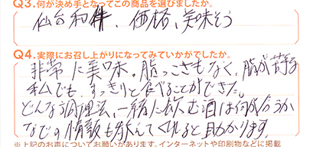 Q3.何が決め手となってこの商品を選びましたか。
仙台和牛、価格、美味そう
Q4.実際にお召し上がりになってみていかがでしたか。
非常に美味。脂っこさもなく、脂が苦手な
私でも、すっきりと食べることができた。
どんな調理法、一緒に飲む酒は何が合うか
などの情報も添えてくれると助かります。
※上記のお声についてお願いがあります。インターネットや印刷物などに掲載